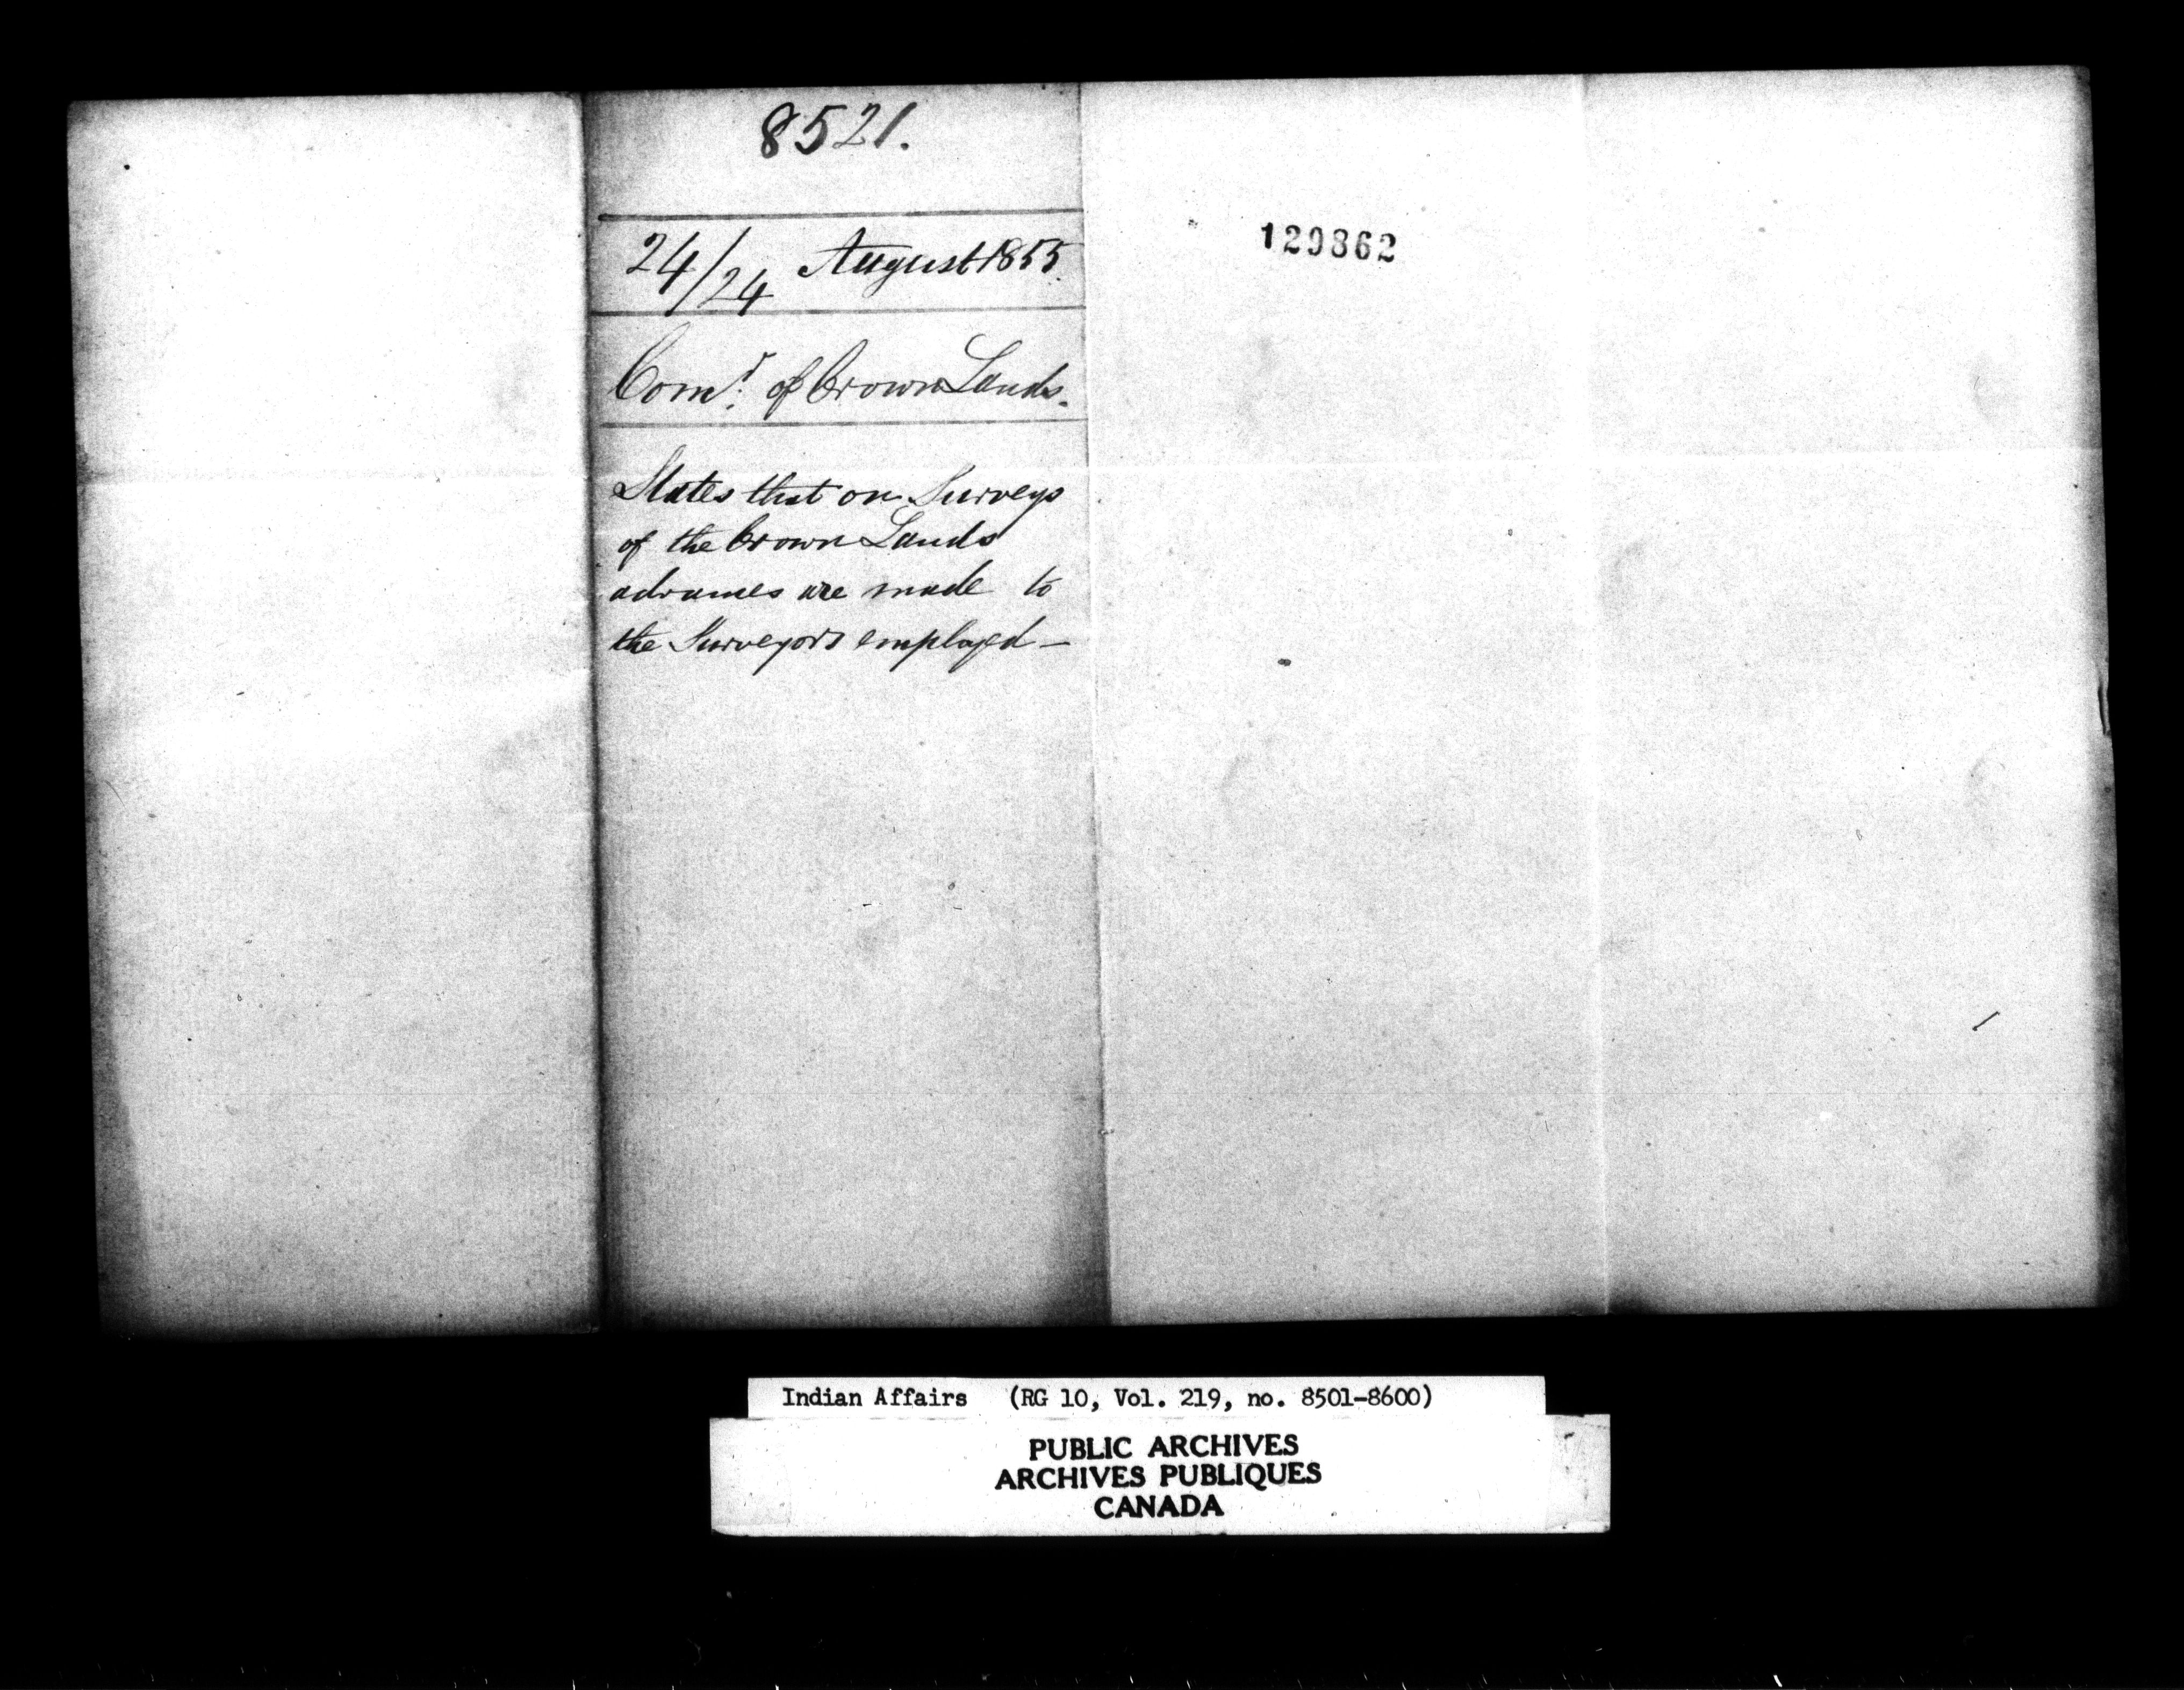 8521.
24/24 August 1855.
Comr. of Crown Lands.
States that on Surveys
of the Crown Lands
advances are made to
the Surveyors employed —
129862
Indian Affairs (RG 10, Vol. 219, no. 8501-8600)
PUBLIC ARCHIVES
ARCHIVES PUBLIQUES
CANADA